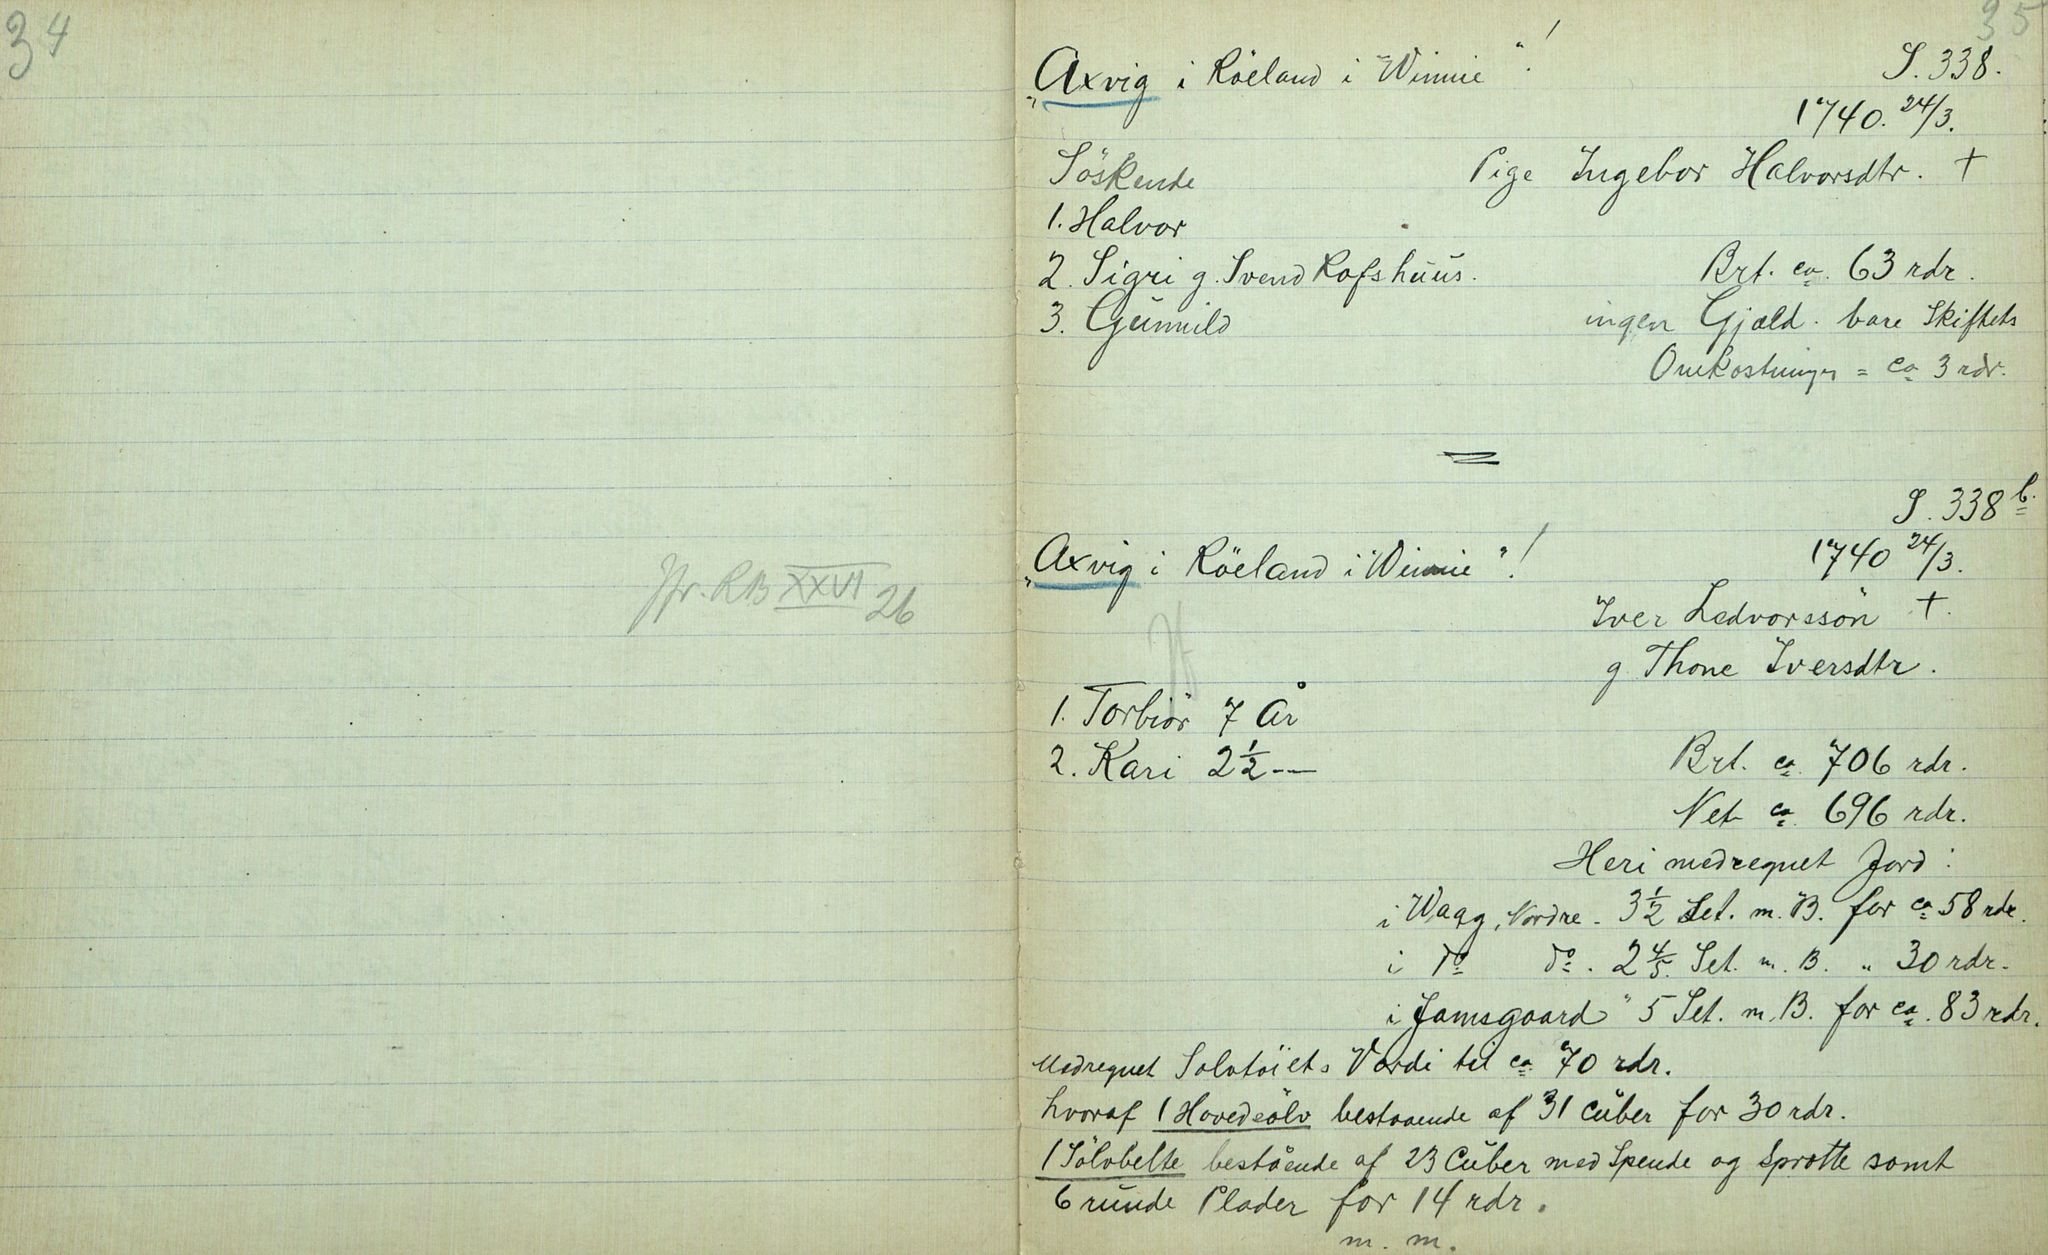 34
Jfr. RB XXVI 26
35
"Axvig i Röeland i Winnie"!
S. 338.
1740. 24/3.
Söskende
Pige Ingebor Halvorsdtr. +
1. Halvor
2. Sigri g. Svend Rofshuus.
Brt. ca. 63 rdr.
3. Gunnild
ingen Gjæld. bare Skiftets
Omkostninger = ca 3 rdr.
S. 338 b.
"Axvig i Röeland i Winnie"!
1740 24/3.
Iver Ledvorssön +.
g. Thone Iversdtr.
1. Torbiör 7 År
2. Kari 2 1/2 —
Brt. ca. 706 rdr.
Net ca. 696 rdr.
Heri medregnet Jord:
i Waag, Nordre - 3 1/2 Set. m. B. for ca 58 rdr.
i do do. 2 4/5 Set. m. B. " 30 rdr.
i Jamsgaard " 5 Set. m. B. for ca. 83 rdr.
Medregnet Sølvtöiets Værdi til ca 70 rdr.
hvoraf 1 Hovedsölv bestaaende af 31 Cuber for 30 rdr.
1 Sölvbelte bestående af 23 Cuber med Spende og Sprotte samt
6 runde Plader for 14 rdr.
m. m.